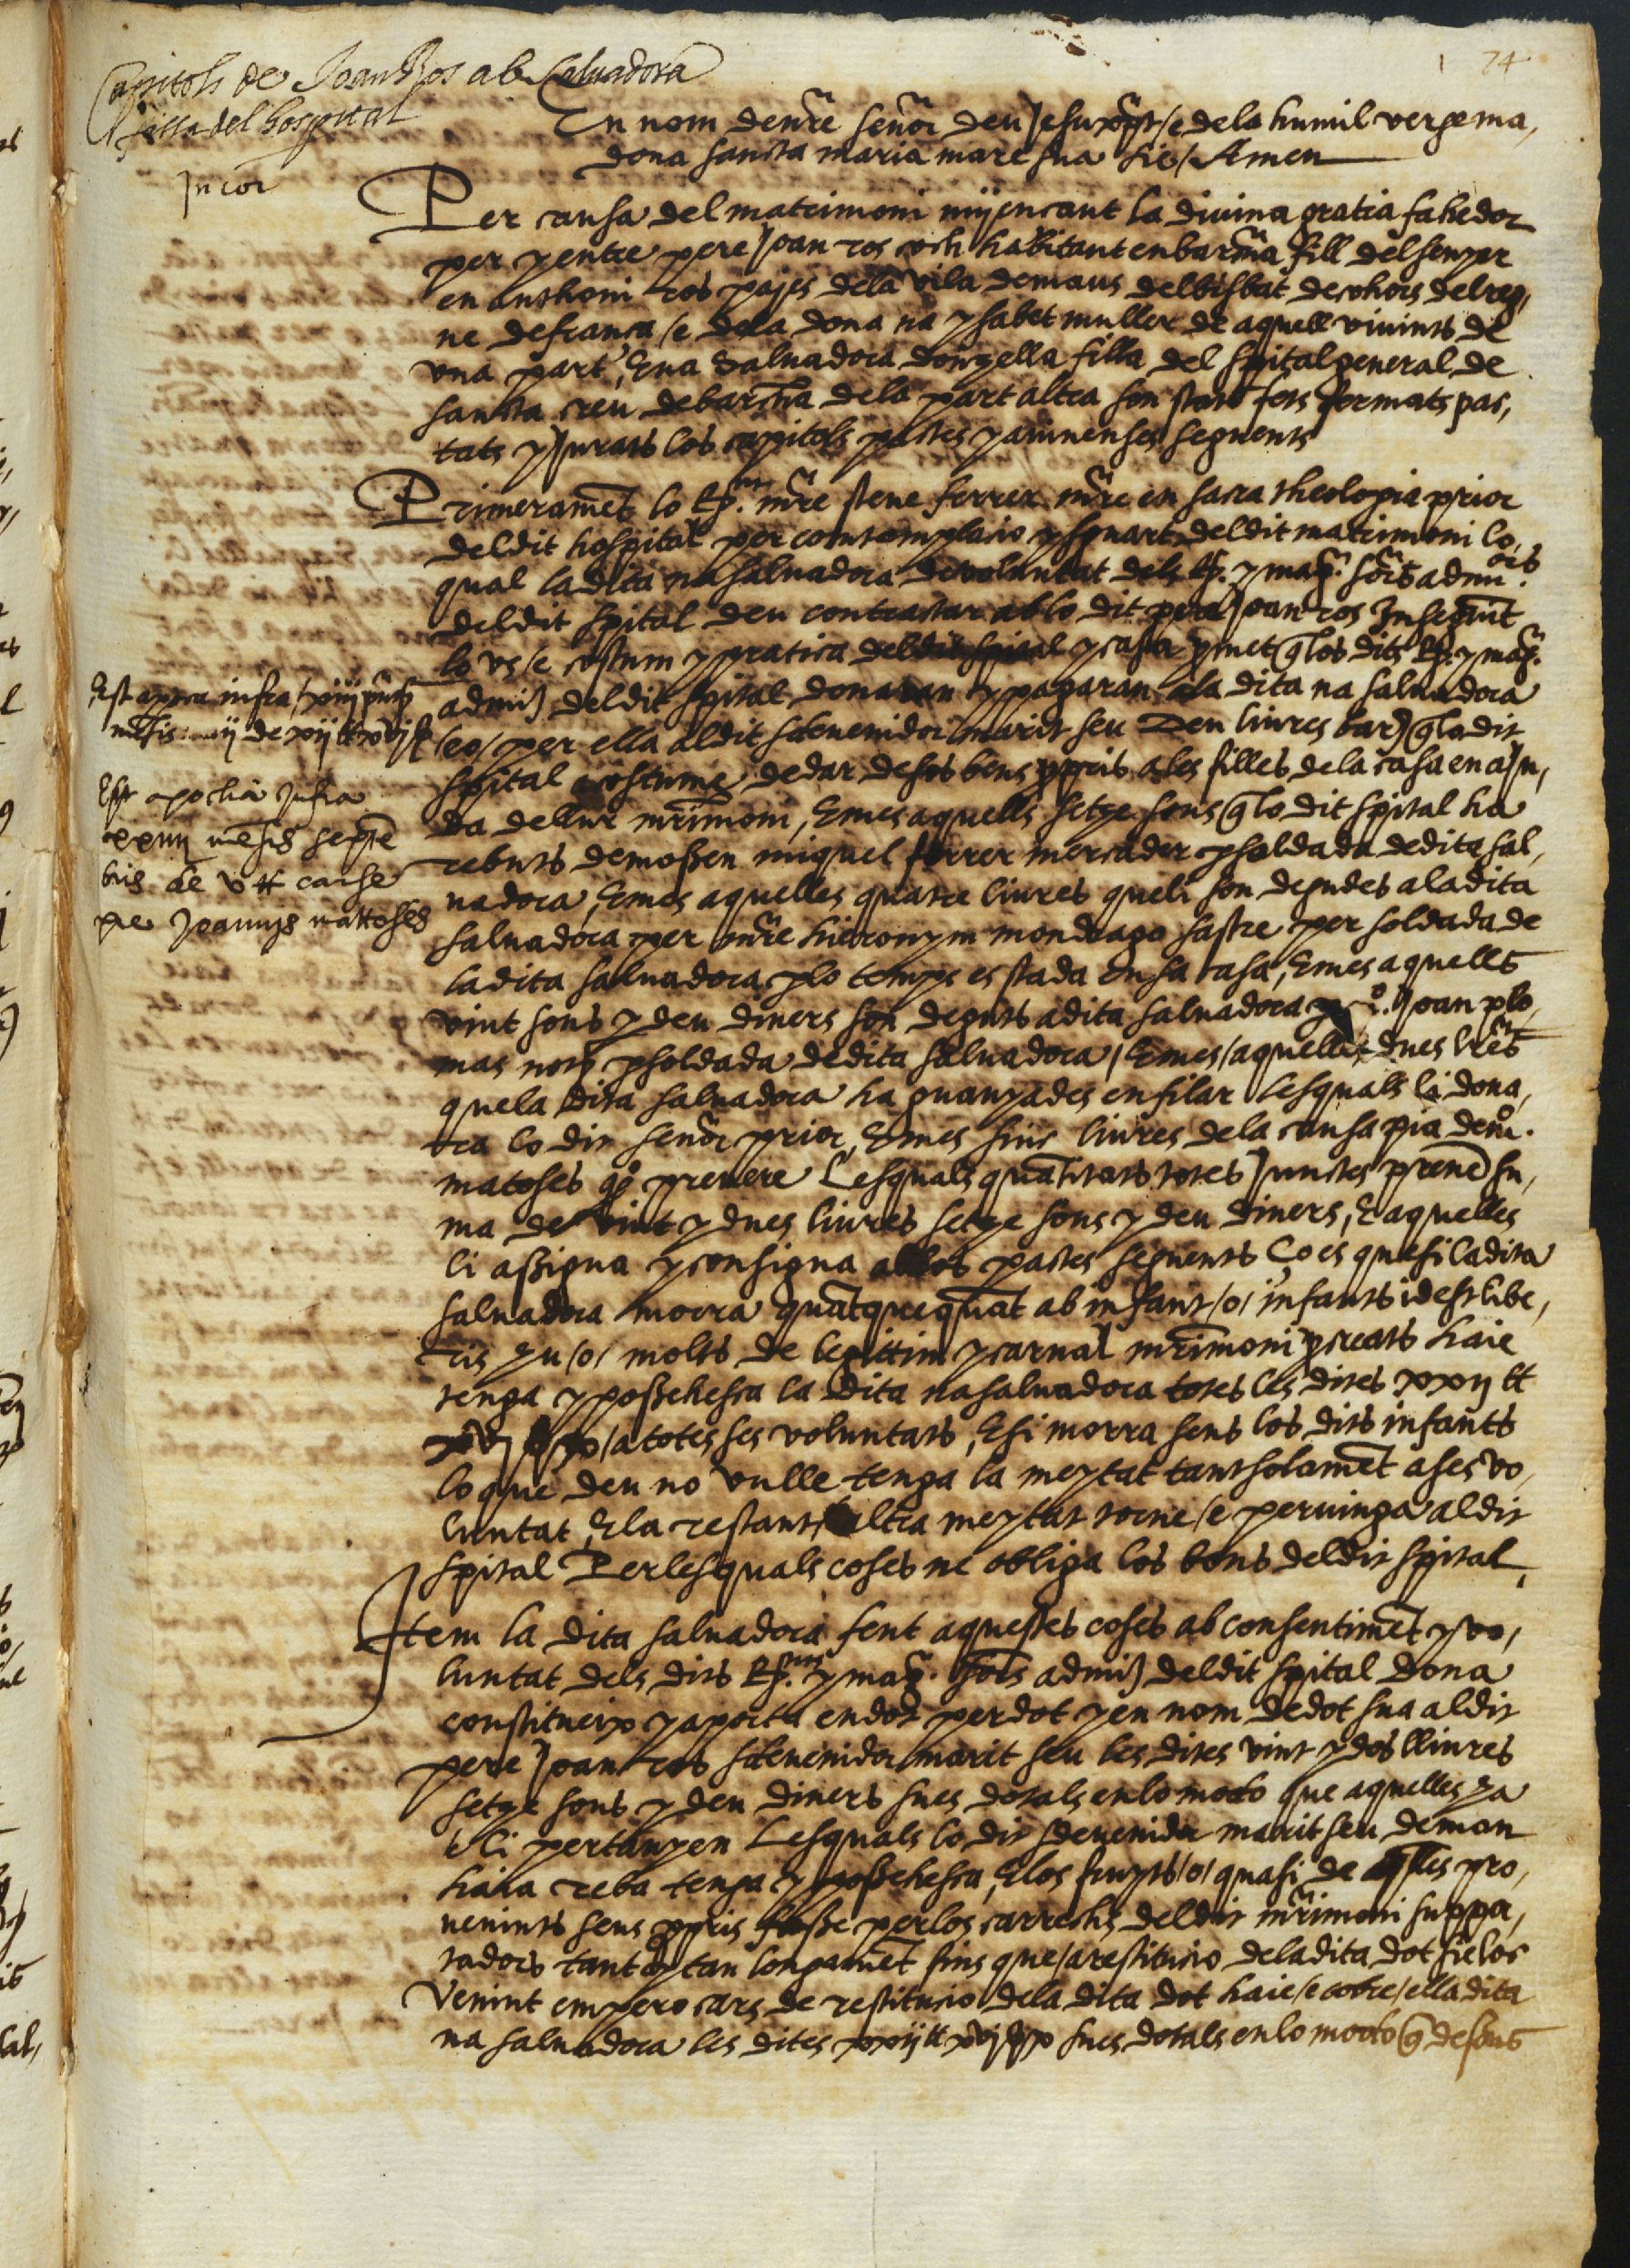 74
Capitols de Joan Ros ab Salvadora
filla del hospital
Jn cor
En nom de nr̃e señor deu Jesuxp̃st /e dela humil verge ma,
dona sancta maria mare sua sie / Amen
Per causa del matrimoni mijencant la divina gratia fahedor
per y entre pere Joan ros habitant en barna fill del senyer
en anthoni ros pajes dela vila demaus delbisbat de rohers del reg,
ne defranca /e dela dona na ysabet muller de aquell vivints de
vna part, E na Saluadora donzella filla del spital general de
sancta creu de barcna dela part altra son stats fets fermats pac,
tats y Jurats los capitols pactes y avinenses seguents
Primeramet lo Rt. mr̃e steue ferrer mr̃e en sacra theologia prior
deldit hospital per contemplacio y sguart deldit matrimoni lo,
qual la dita na saluadora de voluntat dels Rt. y mag. sors admi.ors
deldit spital deu contractar ab lo dit pere Joan ros Inseguit
lo vs /e costum y pratica deldit spital y casa pmet q los dits Rt. y mag.
admi) deldit spital donaran y pagaran a la dita na saluadora
/eo/ per ella al dit sdeuenidor marit seu Deu liures bar) q lo dit
spital acostuma de dar de sos bens ppris a les filles dela casa en aJu,
da de llur mr̃imoni, E mes aquells setze sous q lo dit spital ha
rebuts de mossen miquel ferrer mercader p soldada dedita sal,
uadora, E mes aquelles quatre liures queli son degudes a la dita
saluadora per mr̃e hieronym mondrago sastre per soldada de
la dita saluadora p lo temps es stada en sa casa, E mes aquells
vint sous y deu diners son deguts a dita saluadora p Joan plo,
mas not p soldada de dita saluadora / E mes / aquelles dues lrẽs
que la dita saluadora ha guanyades en filar Lesquals li dona,
ra lo dit señor prior, E mes sinc liures dela causa pia dem.
matoses qo preuere Lesquals quãtitats totes Junctes prenẽ su,
ma de vint y dues liures setze sous y deu diners, E aquelles
li assigna y consigna ab los pactes seguents Co es que si la dita
saluadora morra quãtquequãt ab infant /o/ infants idest libe,
ris hu /o/ molts de legittim y carnal mr̃imoni pcreats haie
tenga y possehesca la dita na saluadora totes les dites xxij ℔
xvj ß x / a totes ses voluntats, E si morra sens los dits infants
lo que deu no vulle tenga la meytat tantsolamẽt a ses vo,
luntat, E la restant altra meytat torne /e peruinga al dit
spital Per lesquals coses ne obliga los bens deldit spital,
Item la dita saluadora fent aquestes coses ab consentimẽt y vo,
luntat dels dits Rt. y mag. sors admi) deldit spital dona
constitueix y aporta en dot per dot y en nom de dot sua al dit
pere Joan ros sdeuenidor marit seu les dites vint y dos lliures
setze sous y deu diners sues dotals en lo modo que aquelles ya
eli pertanyen Lesquals lo dit sdeuenidor marit seu demon
haia reba tenga y possehesca, E los fruyts /o/ quasi de aqlles pro,
uenints seus ppris fasse per los carrechs deldit mr̃imoni suppor,
tadors tant y tan longamẽt fins que / a restitucio dela dita dot sie loc
Venint empero cars de restitucio dela dita dot haie /e cobre / ella dita
na saluadora les dites xxij ℔ xvj ß x sues dotals en lo modo q̃ desous
Est apoca infra xiiij pñtis
mẽsis ... de xvij ℔ xvj ß
Est apocha infra
xxiiij mẽsis septe
bris de v ℔ causse
pie Joannis mattoses